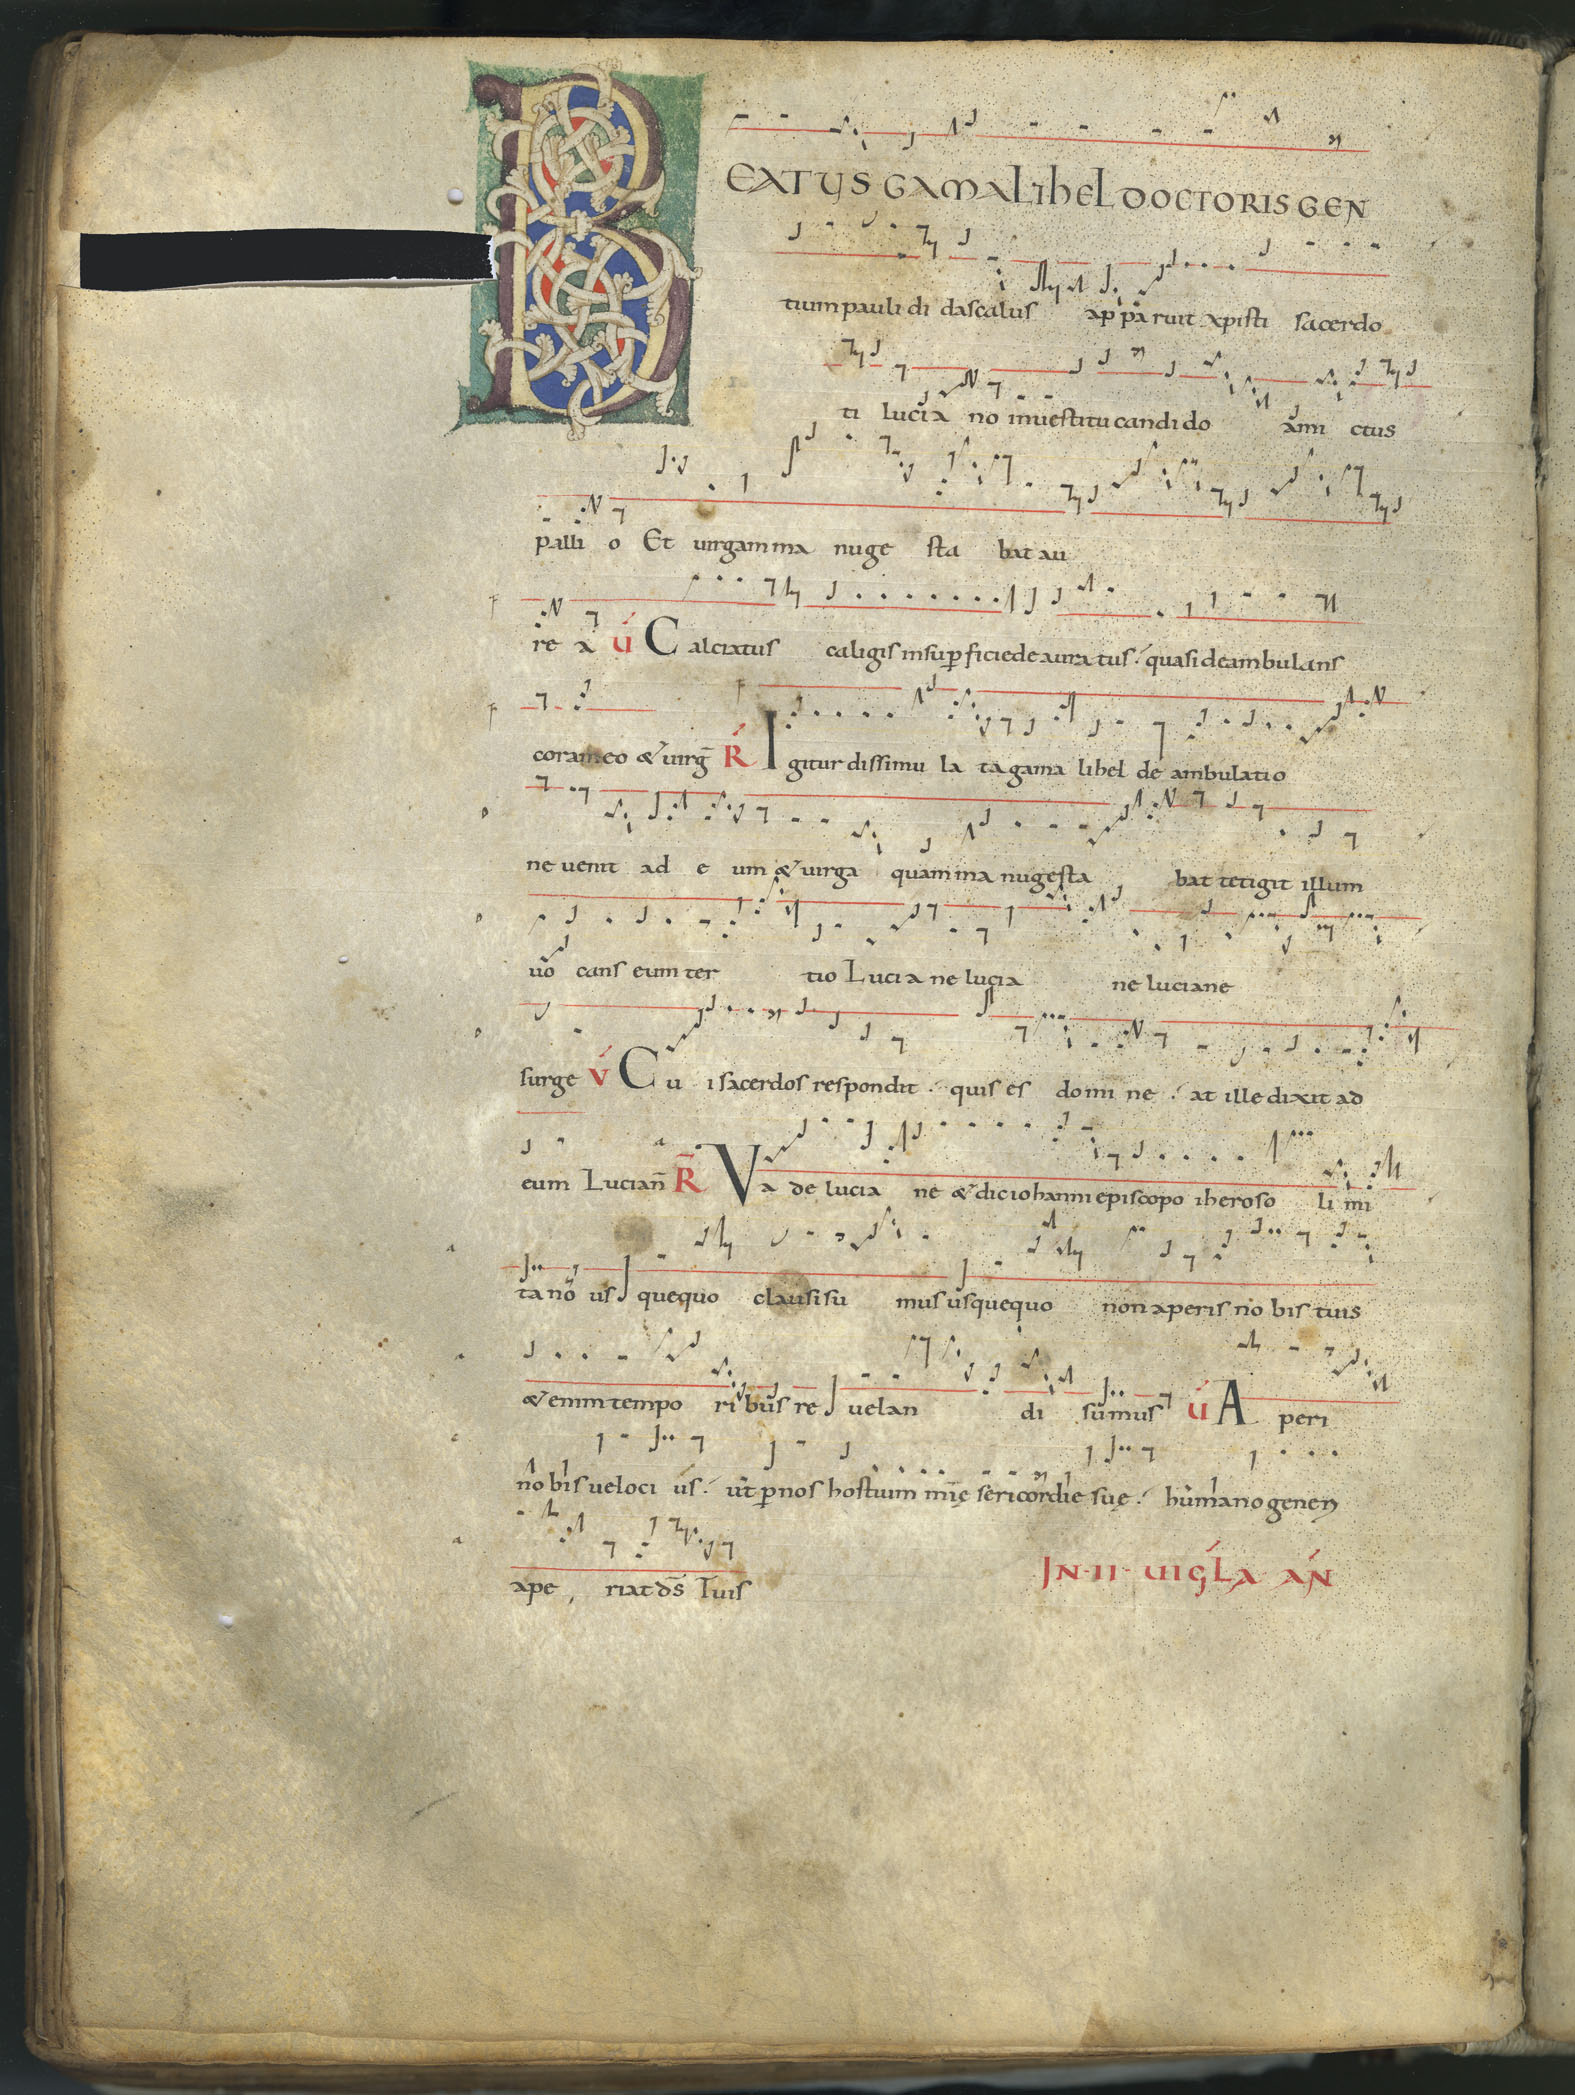 BEATUS GAMALIhEL DOCTORIS GEN
tium pauli di dascalus ap pa ruit xpisti sacerdo
ti lucia no in uestitu candido ami ctus
palli o Et uirgam ma nu ge sta bat au
re a ú Calciatus caligis insuꝑficie deauratus quasi deambulans
coram eo & uirḡ R̄ Igitur dissimu la ta gama lihel de ambulatio
ne uenit ad e um & uirga quam ma nu gesta bat tetigit illum
uo cans eum ter tio Lucia ne lucia ne luciane
surge v́ Cu i sacerdos respondit quis es domi ne at ille dixit ad
eum Lucian̄ R̄ Va de lucia ne & dic iohanni episcopo iheroso li mi
tano us quequo clausi su mus usquequo non aperis no bis tuis
& enim tempo ri bus re uelan di sumus ú A peri
no bis ueloci us ut ꝑ nos hostium mīę sericordie suę humano genen
ape riat d̄s Tuis
IN II UIGLA AN